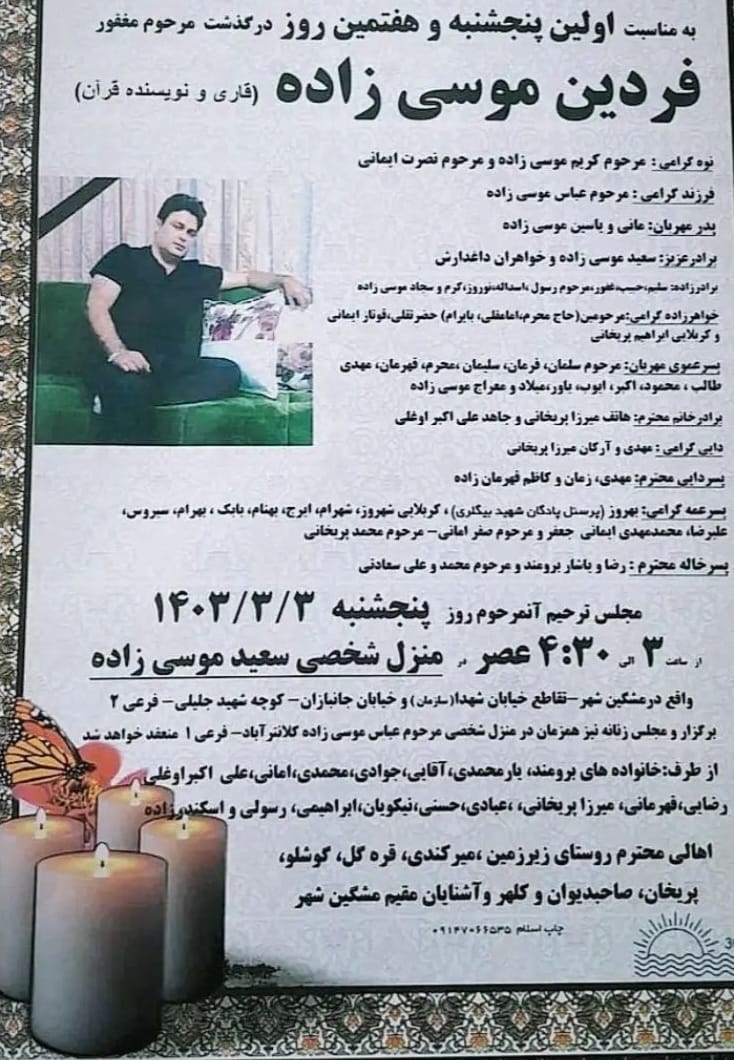 به مناسبت اولین پنجشنبه و هفتمین روز درگذشت مرحوم مغفور
فردین موسی زاده (قاری و نویسنده قرآن)
نوه گرامی: مرحوم کریم موسی زاده و مرحوم نصرت ایمانی
فرزند گرامی: مرحوم عباس موسی زاده
پدر مهربان: مانی و یاسین موسی زاده
برادرعزیز: سعید موسی زاده و خواهران داغدارش
برادرزاده: سلیم،حبیب،غفور،مرحوم رسول ،اسداله،نوروز،کرم و سجاد موسی زاده
خواهرزاده گرامی:مرحومین(حاج محرم،امامقلی، بایرام) حضرتقلی،قوتار ایمانی
و کربلایی ابراهیم پریخانی
پسرعموی مهربان: مرحوم سلمان، فرمان، سلیمان ،محرم، قهرمان، مهدی
طالب ، محمود، اکبر، ایوب، یاور،میلاد و معراج موسی زاده
برادرخانم محترم: هاتف میرزا پریخانی و جاهد علی اکبر اوغلی
دایی گرامی: مهدی و آرکان میرزا پریخانی
پسردایی محترم: مهدی، زمان و کاظم قهرمان زاده
پسرعمه گرامی: بهروز (پرسنل پادگان شهید بیگلری) ، کربلایی شهروز، شهرام، ایرج، بهنام، بابک ، بهرام، سیروس،
علیرضا، محمدمهدی ایمانی جعفر و مرحوم صفر امانی- مرحوم محمد پریخانی
پسرخاله محترم : رضا و یاشار برومند و مرحوم محمد و علی سعادتی
مجلس ترحیم آنمرحوم روز پنجشنبه ۱۴۰۳/۳/۳
از ساعت ۳ الی ۴:۳۰ عصر در منزل شخصی سعید موسی زاده
واقع درمشگین شهر-تقاطع خیابان شهدا(سازمان) و خیابان جانبازان- کوچه شهید جلیلی- فرعی ۲
برگزار و مجلس زنانه نیز همزمان در منزل شخصی مرحوم عباس موسی زاده کلانترآباد- فرعی ۱ منعقد خواهد شد
از طرف:خانواده های برومند، یارمحمدی،آقایی،جوادی،محمدی،امانی،علی اکبراوغلی
رضایی،قهرمانی، میرزا پریخانی، ،عبادی،حسنی،نیکویان،ابراهیمی، رسولی و اسکندرزاده
اهالی محترم روستای زیرزمین ،میرکندی، قره گل، گوشلو،
پریخان، صاحبدیوان و کلهر وآشنایان مقیم مشگین شهر
چاپ اسلام ۰۹۱۴۷۰۶۶۵۳۵